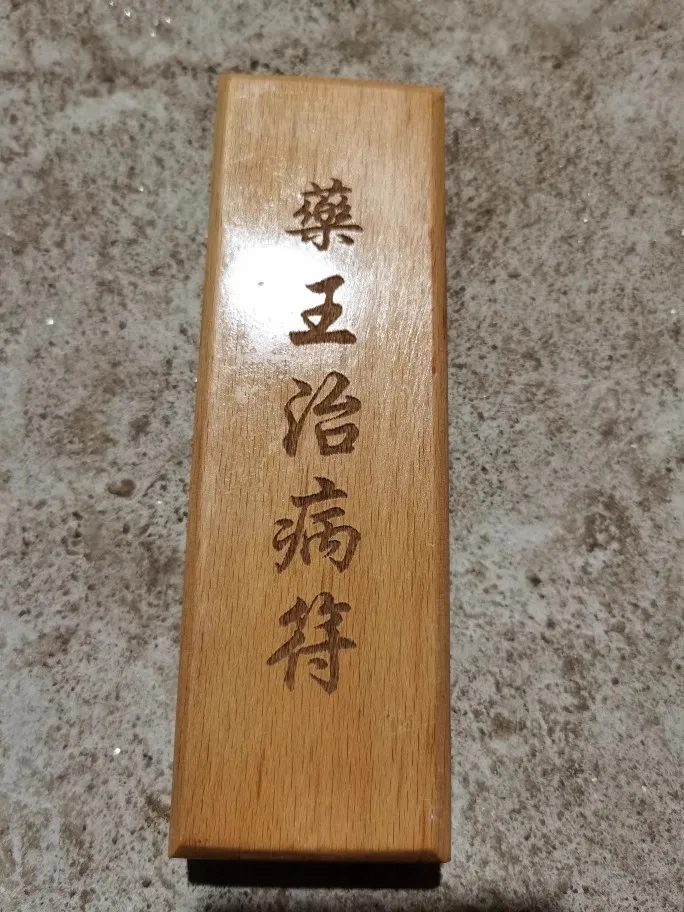 藥王治病符